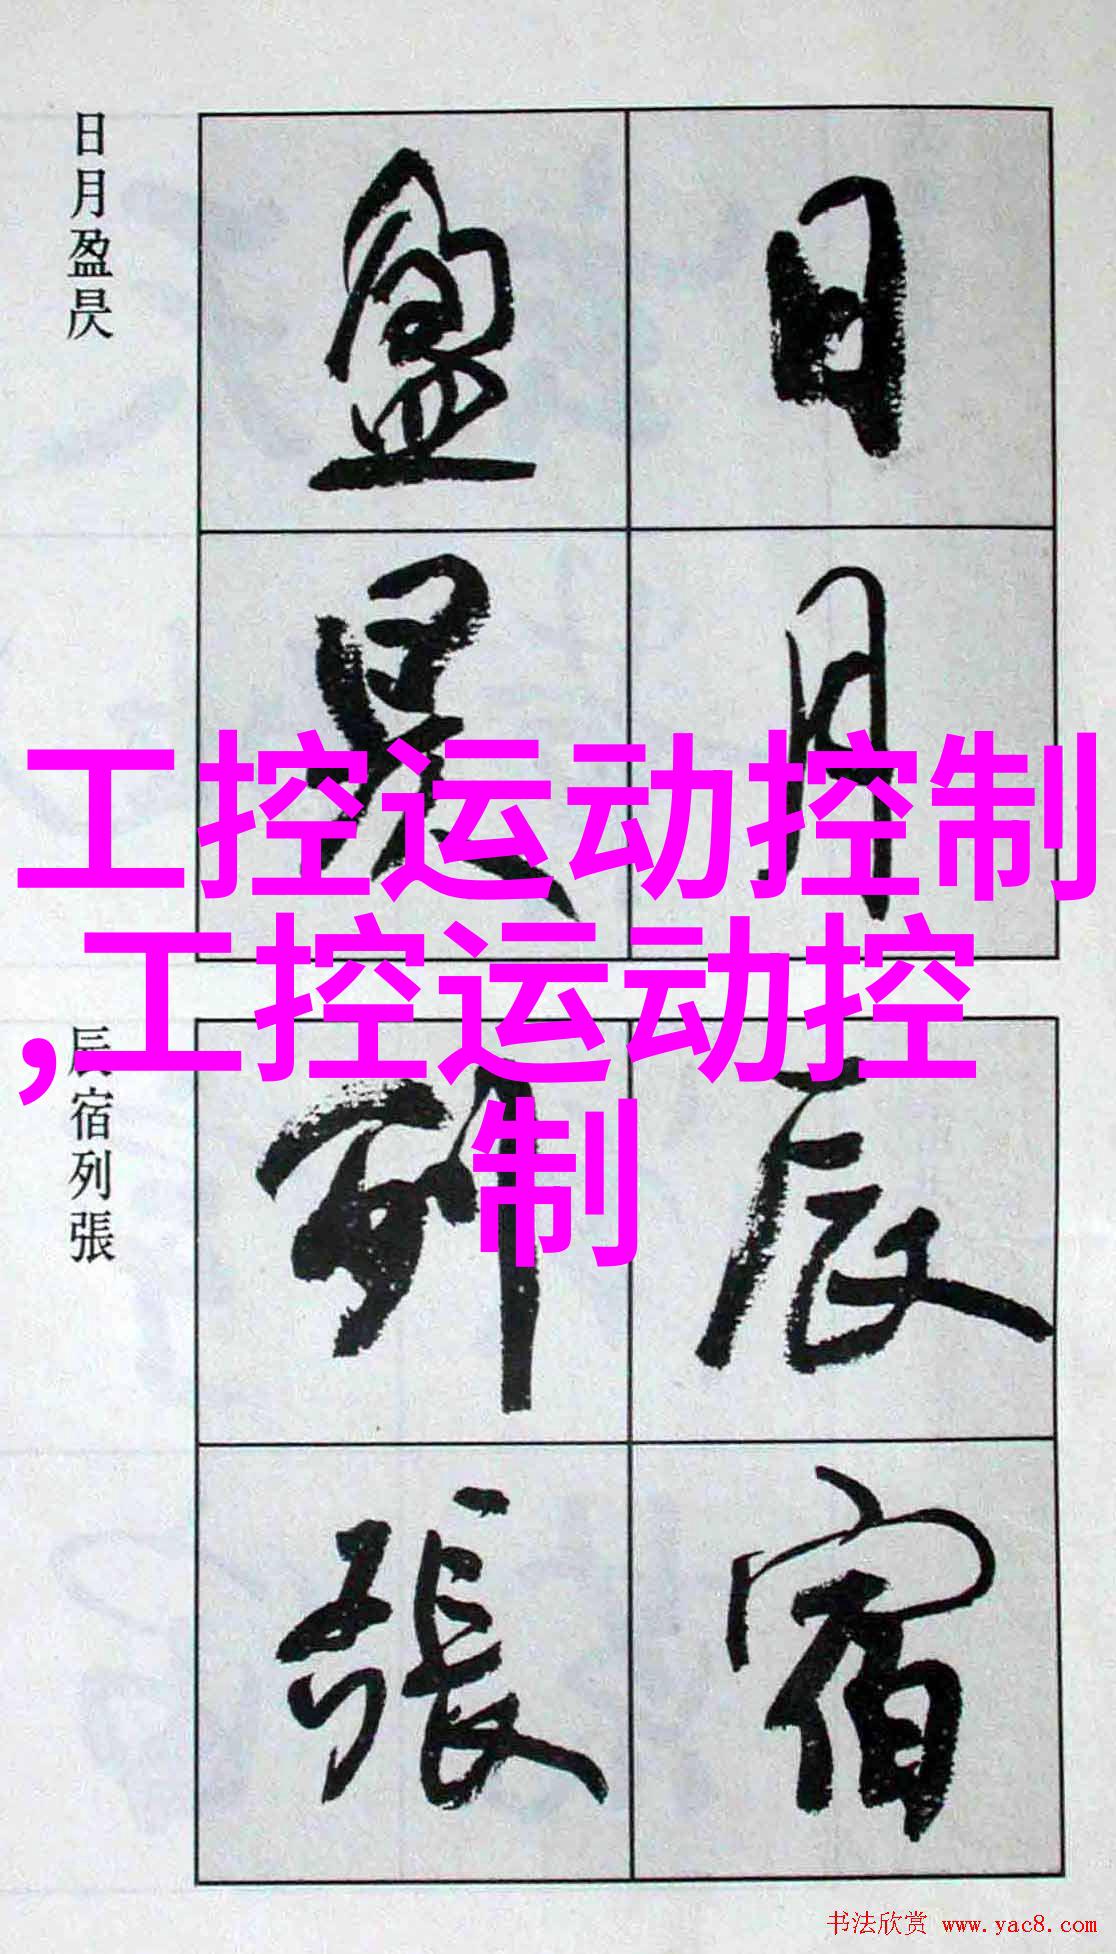 日月盈昃
盈 日
昃 月
工控运动控制
,工控运动控
制
辰宿列張
列 辰
張 宿
书法欣赏 www.yac8.com